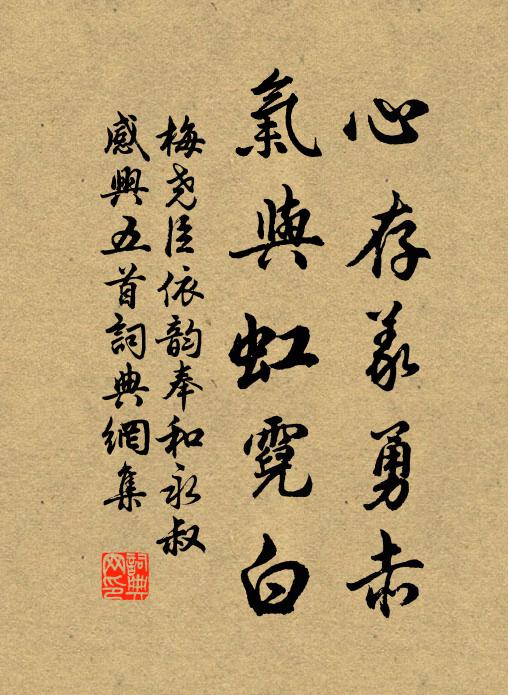 心存義勇赤
氣與虹霓白
梅尧臣依韵奉和永叔
感興五首詞典網集
詞典
网印